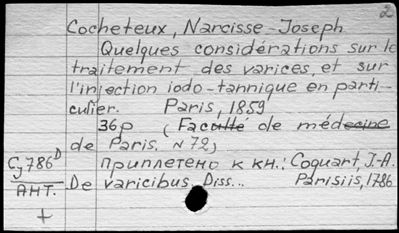 2
Cocheteux, Narcisse-Joseph
Quelques considérations sur le
traitement des varices, et sur
l'injection iodo-tannique en parti-
culier. Paris, 1859
36p (Faculté de médecine
de Paris. N 72)
Cj 786D приплетено к кн.: Coquart, J-A.
АНТ. De varicibus. Diss... Parisiis, 1786
+